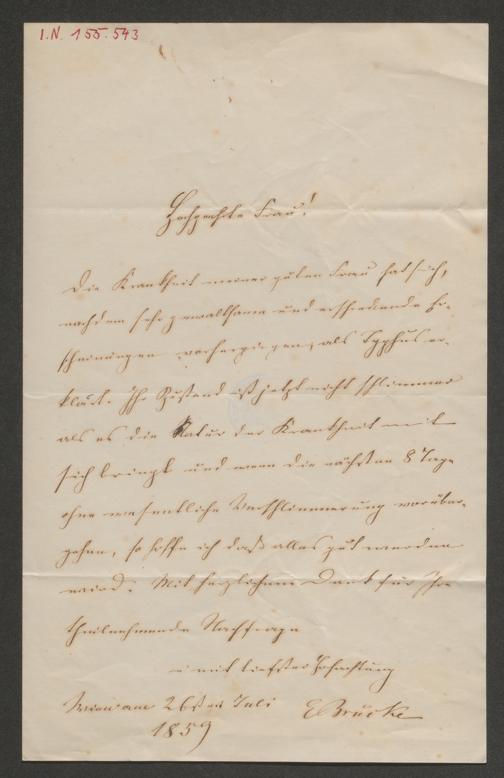 I.N. 155.543
Hochgeehrte Frau!
Die Krankheit meiner guten Frau hat sich,
nachdem sehr gewaltsame und erschreckende Er-
scheinungen vorhergiengen, als Typhus er-
klärt. Ihr Zustand ist jetzt nicht schlimmer
als es die Natur der Krankheit mit
sich bringt und wenn die nächsten 8 Tage
ohne wesentliche Verschlimmerung vorüber-
gehen, so hoffe ich daß alles gut werden
wird. Mit herzlichem Dank für Ihre
theilnehmende Nachfrage
mit tiefster Hochachtung
Wien am 26sten Juli
EBrücke
1859